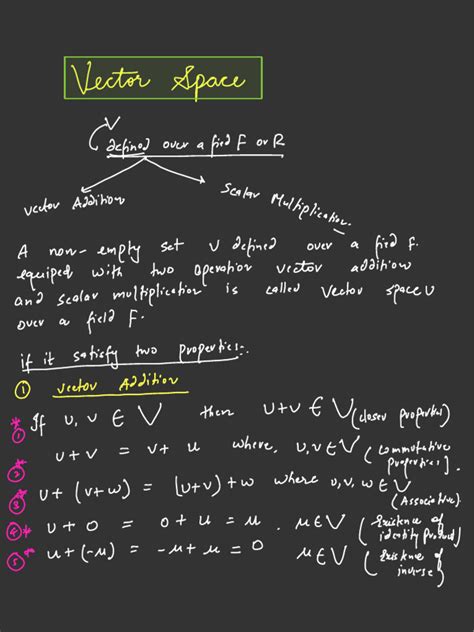 Vector Space
V
defined over a field F or R
vector Addition
Scalar Multiplication.
A non-empty set V defined over a field F.
equiped with two operation vector addition
and scalar multiplication is called Vector space V
over a field F.
if it satisfy two properties:-
① vector Addition
* ① If u, v ∈ V then u+v ∈ V (closer properties)
* ② u+v = v+u where, u,v ∈ V (commutative properties].
* ③ u+(v+w) = (u+v)+w where u,v,w ∈ V (Associative)
④* u+0 = 0+u = u . u∈V (Existence of identity product)
⑤* u+(-u) = -u+u = 0 u∈V (Existence of inverse)